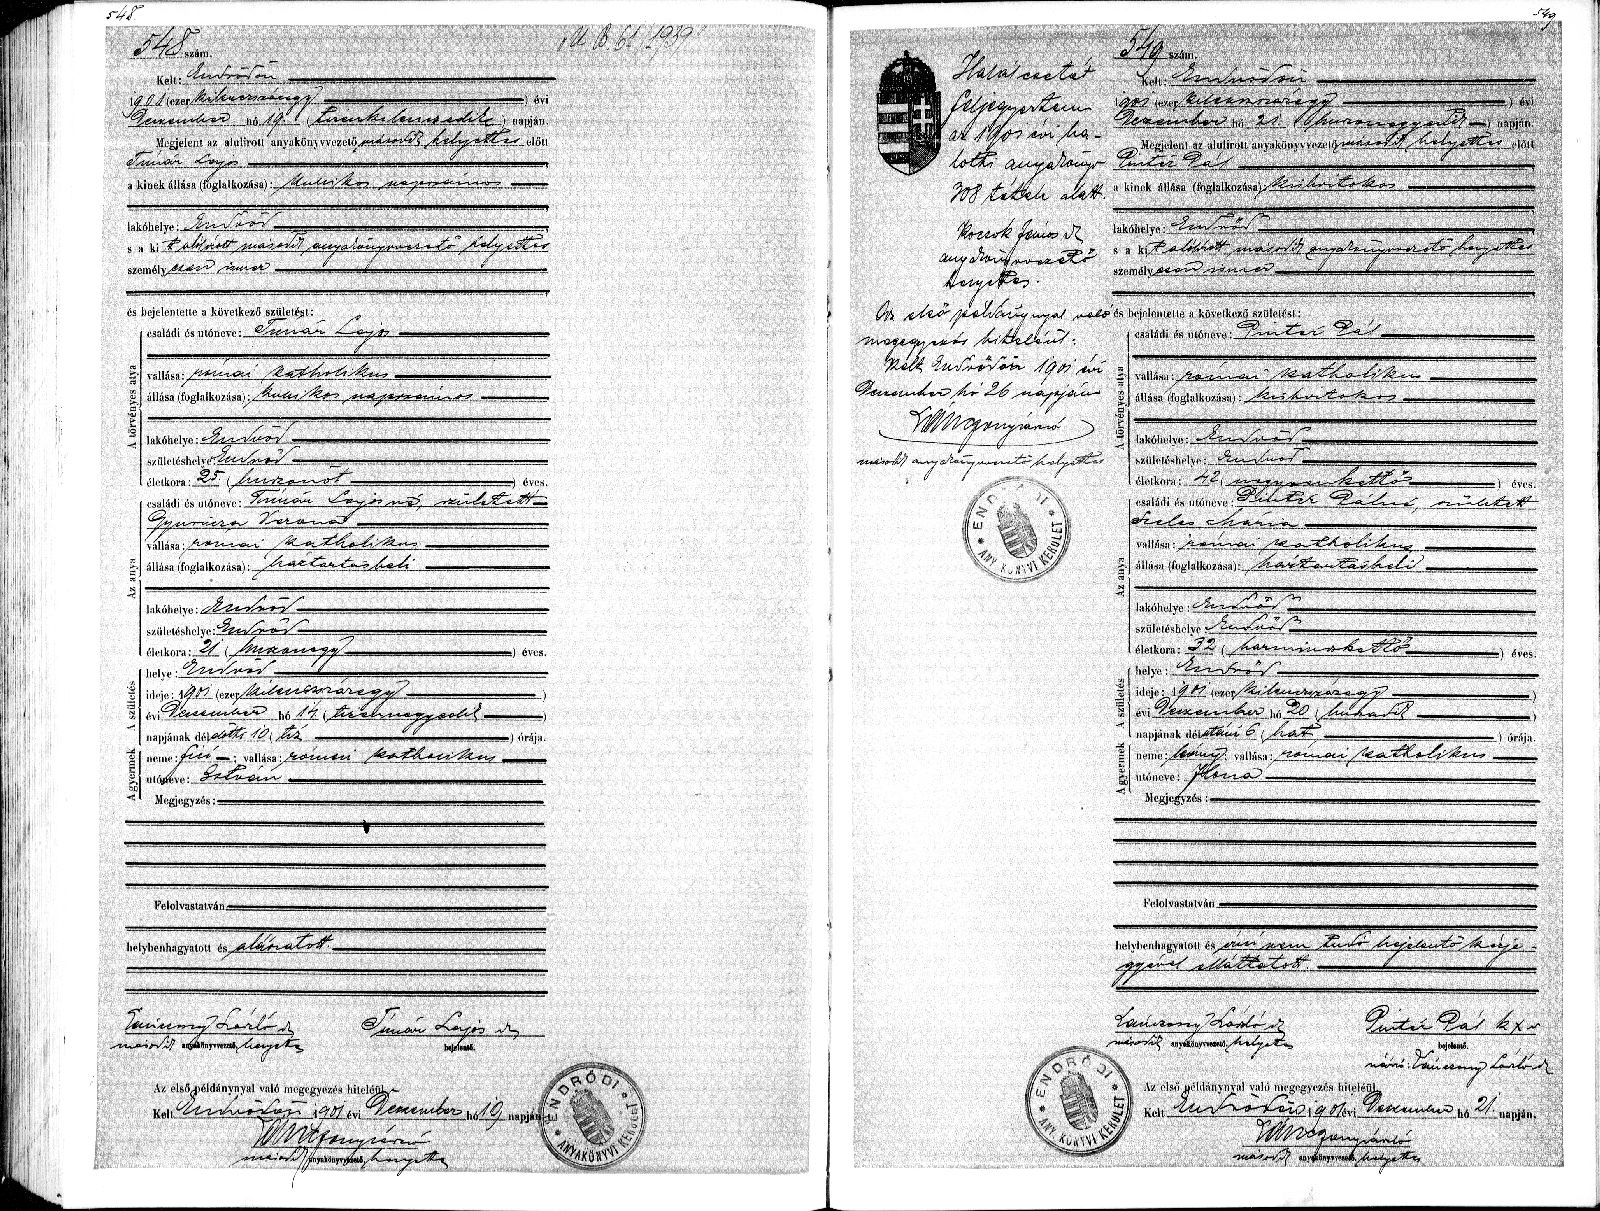 548
548 szám.
Kelt: Endrődön
1901 (ezer kilencszázegy) évi
Dezember hó 19. (tizenkilencedik) napján.
Megjelent az alulirott anyakönyvvezető második helyettes előtt
Timár Lajos
a kinek állása (foglalkozása): kubikos napszámos
lakóhelye: Endrőd
s a kit alólirott második anyakönyvvezető helyettes
személyesen ismer
és bejelentette a következő születést:
A törvényes atya
családi és utóneve: Timár Lajos
vallása: római katholikus
állása (foglalkozása): kubikos napszámos
lakóhelye: Endrőd
születéshelye: Endrőd
életkora: 25 (huszonöt) éves.
Az anya
családi és utóneve: Timár Lajosné, született
Gyuricza Verona
vallása: római katholikus
állása (foglalkozása): háztartásbeli
lakóhelye: Endrőd
születéshelye: Endrőd
életkora: 21 (huszonegy) éves.
A születés
helye: Endrőd
ideje: 1901 (ezer kilencszázegy)
évi Dezember hó 14 (tizennegyedik)
napjának délelőtti 10 (tíz) órája.
A gyermek
neme: fiú; vallása: római katholikus
utóneve: István
Megjegyzés:
Felolvastatván
helybenhagyatott és aláíratott.
Vánczony László sk
második anyakönyvvezető helyettes
Timár Lajos sk
bejelentő.
Az első példánynyal való megegyezés hiteléül
Kelt Endrődön 1901 évi Dezember hó 19 napján
második anyakönyvvezető helyettes
ENDRŐDI
ANYAKÖNYVI KERÜLET
549
Halálesetét
feljegyeztem
az 1901 évi ha-
lotti anyakönyv
308 tétele alatt.
anyakönyvvezető
helyettes.
Az első példánynyal való
megegyezés hiteléül:
Kelt Endrődön 1901 évi
Dezember hó 26 napján
második anyakönyvvezető helyettes
ENDRŐDI
ANYAKÖNYVI KERÜLET
549 szám.
Kelt: Endrődön
1901 (ezer kilencszázegy) évi
Dezember hó 21 (huszonegyedik) napján
Megjelent az alulirott anyakönyvvezető második helyettes előtt
Pintér Pál
a kinek állása (foglalkozása): kisbirtokos
lakóhelye: Endrőd
s a kit alólirott második anyakönyvvezető helyettes
személyesen ismer
és bejelentette a következő születést:
A törvényes atya
családi és utóneve: Pintér Pál
vallása: római katholikus
állása (foglalkozása): kisbirtokos
lakóhelye: Endrőd
születéshelye: Endrőd
életkora: 42 (negyvenkettő) éves.
Az anya
családi és utóneve: Pintér Pálné, született
Szeles Mária
vallása: római katholikus
állása (foglalkozása): háztartásbeli
lakóhelye: Endrőd
születéshelye Endrőd
életkora: 32 (harminczkettő) éves.
A születés
helye: Endrőd
ideje: 1901 (ezer kilencszázegy)
évi Dezember hó 20 (huszadik)
napjának délutáni 6 (hat) órája.
A gyermek
neme: leány; vallása: római katholikus
utóneve: Ilona
Megjegyzés:
Felolvastatván
helybenhagyatott és írni nem tudó bejelentő kézje-
gyével elláttatott.
Vánczony László sk
második anyakönyvvezető, helyettes
Pintér Pál
bejelentő.
Vánczony László sk
Az első példánynyal való megegyezés hiteléül
Kelt Endrődön 1901 évi Dezember hó 21. napján.
második anyakönyvvezető, helyettes
ENDRŐDI
ANYAKÖNYVI KERÜLET